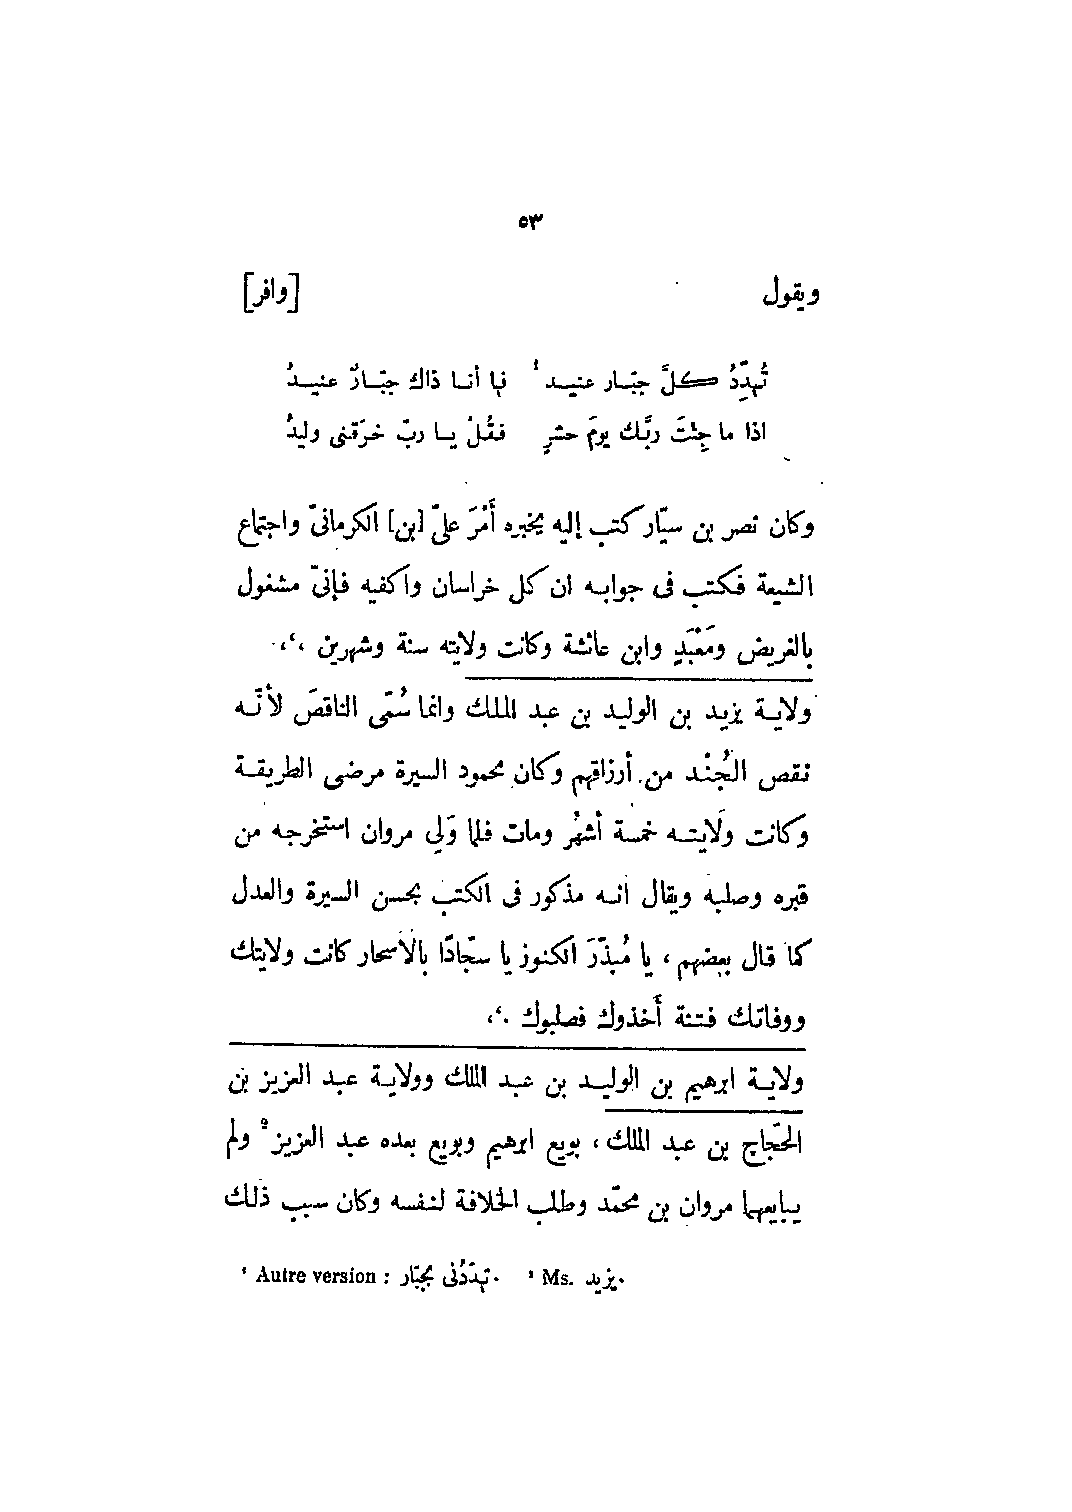 ٥٣
ويقول [وافر]
تُهدِّدُ كلَّ جبّار عنيد ¹ فها أنا ذاك جبّارٌ عنيدُ
اذا ما جِئتَ ربَّك يومَ حشرٍ فقُلْ يا ربّ خرَقنى وليدُ
وكان نصر بن سيّار كتب إليه يخبره أمْرَ علىّ [بن] الكرمانىّ واجتماع
الشيعة فكتب فى جوابه ان كل خراسان واكفيه فإنىّ مشغول
بالغريض ومَعْبَدٍ وابن عائشة وكانت ولايته سنة وشهرين ،‘،
ولاية يزيد بن الوليد بن عبد الملك وانما سُمّى الناقصَ لأنّه
نقص الجُنْد من أرزاقهم وكان محمود السيرة مرضى الطريقة
وكانت ولايته خمسة أشهُر ومات فلما وَلِى مروان استخرجه من
قبره وصلبه ويقال انه مذكور فى الكتب بحسن السيرة والعدل
كما قال بعضهم ، يا مُبذّرَ الكنوز يا سجّادًا بالاسحار كانت ولايتك
ووفاتك فتنة أخذوك فصلبوك ،‘.
ولاية ابرهيم بن الوليد بن عبد الملك وولاية عبد العزيز بن
الحجّاج بن عبد الملك ، بويع ابرهيم وبويع بعده عبد العزيز ² ولم
يبايعهما مروان بن محمّد وطلب الخلافة لنفسه وكان سبب ذلك
¹ Autre version : تهدّدُنى بجبّار. ² Ms. يزيد.